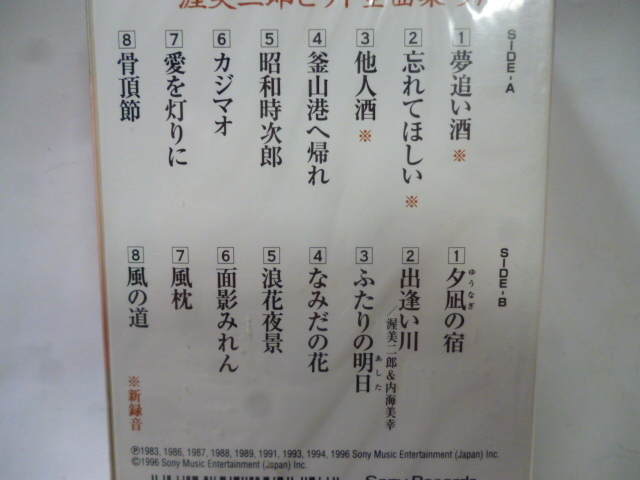 SIDE-A
1 夢追い酒 ※
2 忘れてほしい ※
3 他人酒 ※
4 釜山港へ帰れ
5 昭和時次郎
6 カジマオ
7 愛を灯りに
8 骨頂節
SIDE-B
1 夕凪の宿
ゆうなぎ
2 出逢い川
/渥美二郎&内海美幸
3 ふたりの明日
あした
4 なみだの花
5 浪花夜景
6 面影みれん
7 風枕
8 風の道
※新録音
Ⓟ1983, 1986, 1987, 1988, 1989, 1991, 1993, 1994, 1996 Sony Music Entertainment (Japan) Inc.
©1996 Sony Music Entertainment (Japan) Inc.
Sony Records